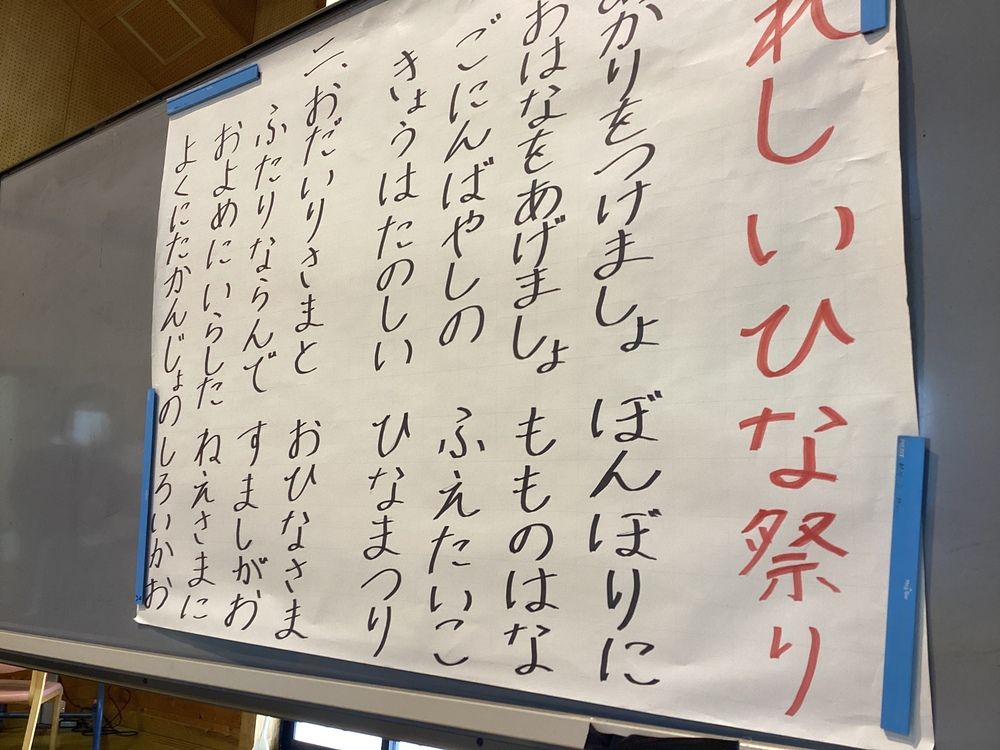 れしいひな祭り
あかりをつけましょ ぼんぼりに
おはなをあげましょ もものはな
ごにんばやしの ふえたいこ
きょうはたのしい ひなまつり
二、おだいりさまと おひなさま
ふたりならんで すましがお
およめにいらした ねえさまに
よくにたかんじょのしろいかお